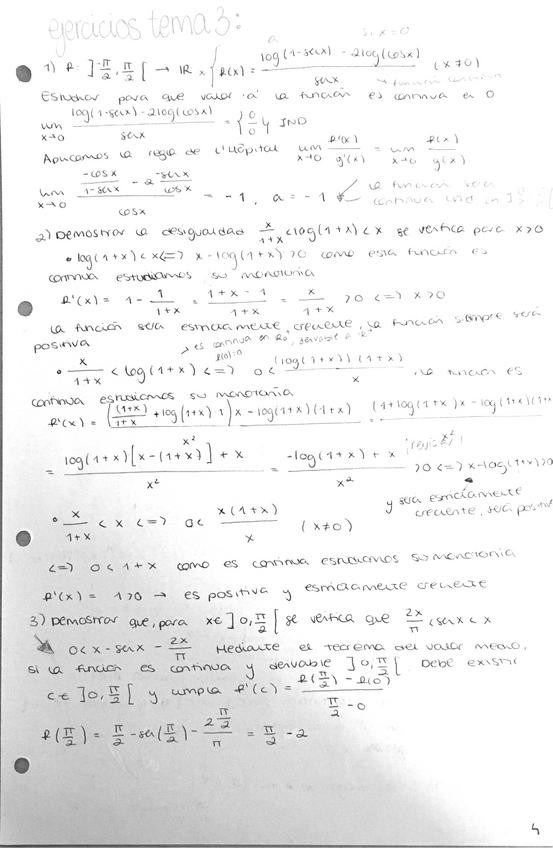 ejercicios tema 3:
a si x=0
1) f: ]-π/2, π/2[ → IR { f(x) = (log(1-senx) - 2log(cosx))/senx (x≠0)
Estudiar para que valor 'a' la función es continua en 0
lim x→0 (log(1-senx) - 2log(cosx))/senx = {0/0} IND
Aplicamos la regla de L'Hôpital lim x→0 f'(x)/g'(x) = lim x→0 f(x)/g(x)
lim x→0 (-cosx/(1-senx) - 2 (-senx/cosx))/cosx = -1, a = -1 la función será
continua
2) Demostrar la desigualdad x/(1+x) < log(1+x) < x se verifica para x>0
• log(1+x) < x <=> x - log(1+x) > 0 como esta función es
continua estudiamos su monotonía
f'(x) = 1 - 1/(1+x) = (1+x-1)/(1+x) = x/(1+x) > 0 <=> x>0
la función será estrictamente creciente, la función siempre será
positiva
→ es continua en
f(0)=0
• x/(1+x) < log(1+x) <=> 0 < (log(1+x))(1+x)/x, la función es
continua estudiamos su monotonía
f'(x) = (((1+x)/(1+x) + log(1+x) 1) x - log(1+x)(1+x))/x² = ((1+log(1+x)x - log(1+x)(1+x)/x²
= (log(1+x)[x-(1+x)] + x)/x² = (-log(1+x) + x)/x² > 0 <=> x-log(1+x)>0
y será estrictamente
creciente, será positiva
• x/(1+x) < x <=> 0 < x(1+x)/x (x≠0)
<=> 0 < 1+x como es continua estudiamos su monotonía
f'(x) = 1>0 → es positiva y estrictamente creciente
3) Demostrar que, para x∈ ]0, π/2[ se verifica que 2x/π < senx < x
0 < x - senx - 2x/π Mediante el teorema del valor medio,
si la función es continua y derivable ]0, π/2[ Debe existir
c∈ ]0, π/2[ y cumpla f'(c) = (f(π/2) - f(0))/(π/2 - 0)
f(π/2) = π/2 - sen(π/2) - (2 π/2)/π = π/2 - 2
4